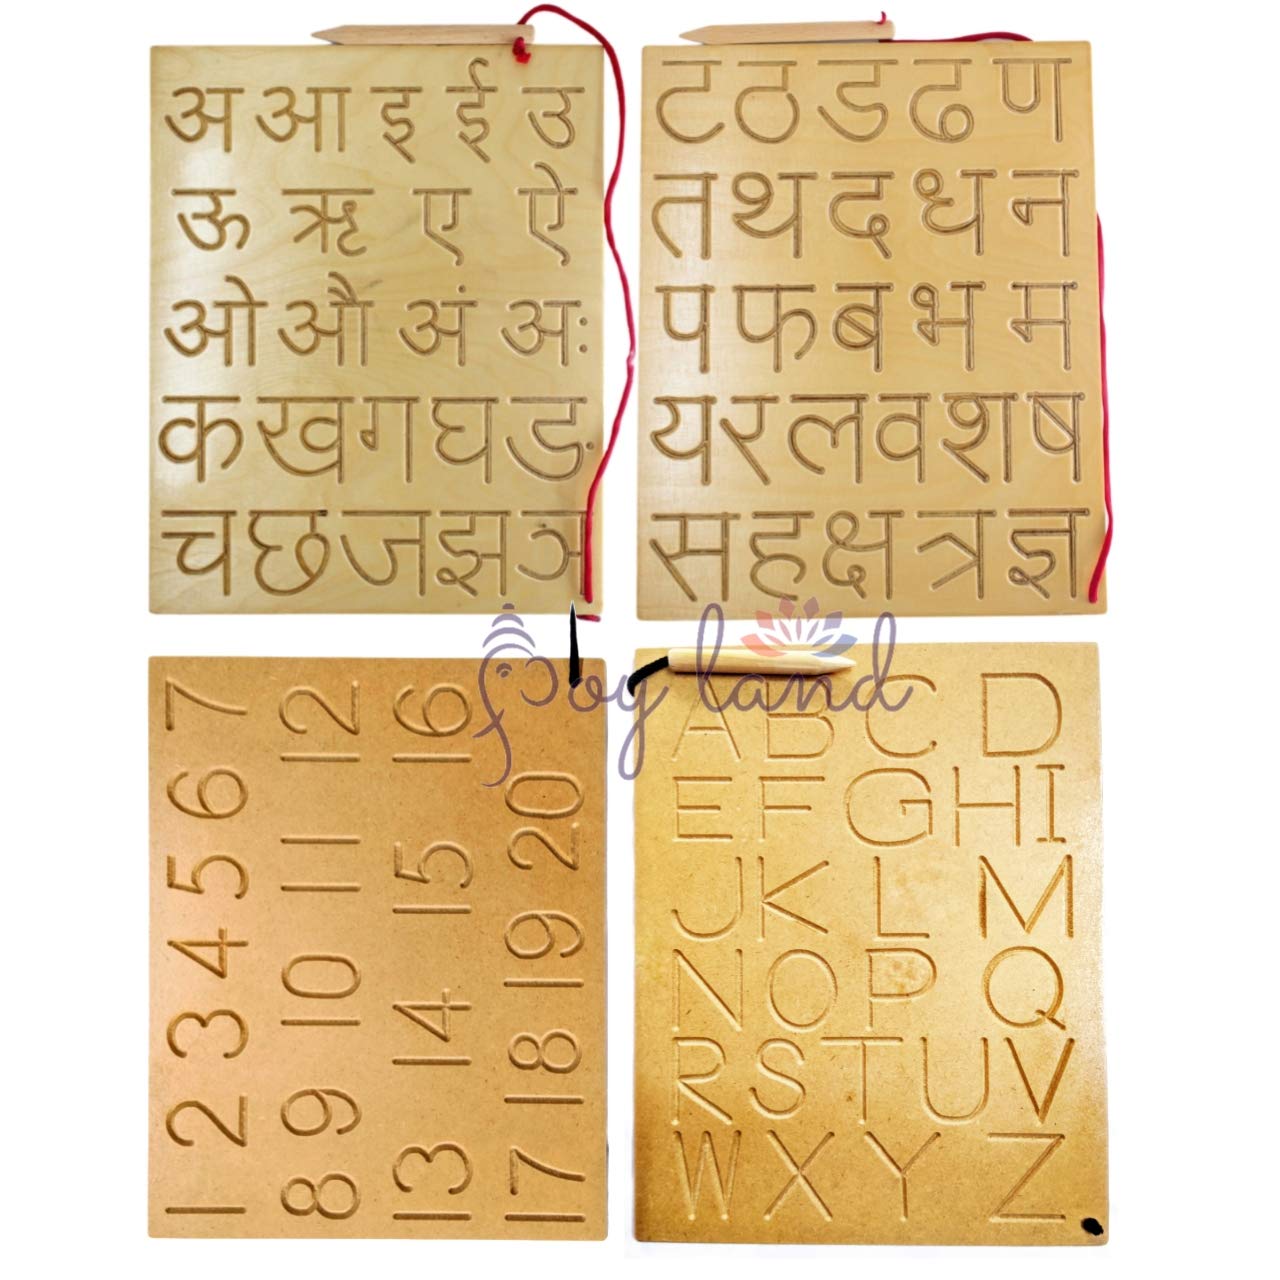 अ आ इ ई उ
ऊ ऋ ए ऐ
ओ औ अं अः
क ख ग घ ङ
च छ ज झ ञ
ट ठ ड ढ ण
त थ द ध न
प फ ब भ म
य र ल व श ष
स ह क्ष त्र ज्ञ
1 2 3 4 5 6 7
8 9 10 11 12
13 14 15 16
17 18 19 20
A B C D
E F G H I
J K L M
N O P Q
R S T U V
W X Y Z
Joy land